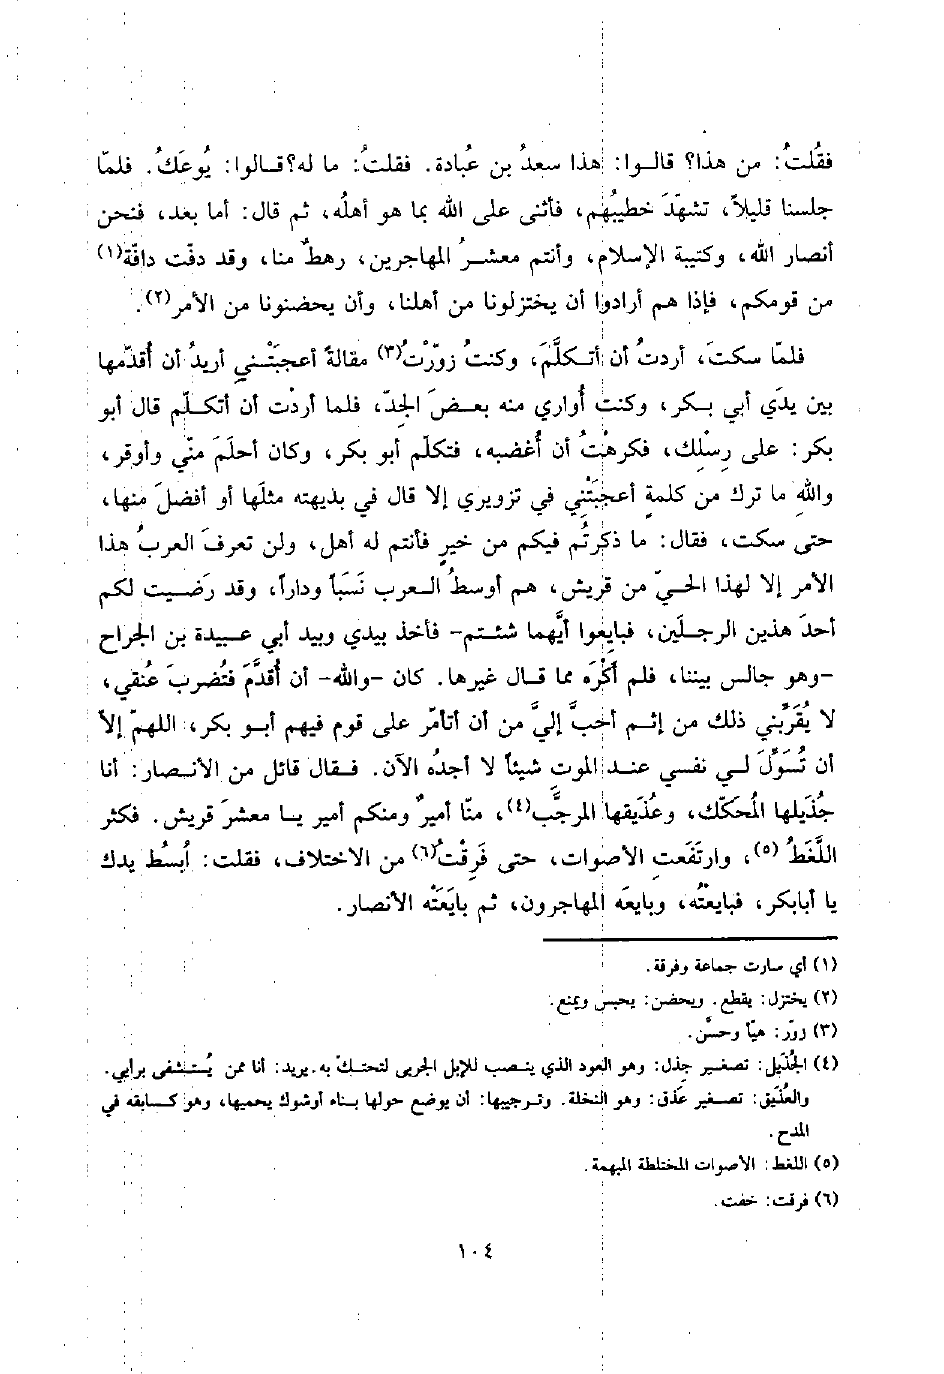 فقُلتُ: من هذا؟ قالوا: هذا سعدُ بن عُبادة. فقلتُ: ما له؟ قالوا: يُوعَكُ. فلمّا
جلسنا قليلاً، تشهَّدَ خطيبُهم، فأثنى على الله بما هو أهلُه، ثم قال: أما بعد، فنحن
أنصار الله، وكتيبة الإسلام، وأنتم معشرُ المهاجرين، رهطٌ منا، وقد دفّت دافّة(١)
من قومكم، فإذا هم أرادوا أن يختزلونا من أهلنا، وأن يحضنونا من الأمر(٢).
فلمّا سكتَ، أردتُ أن أتكلَّمَ، وكنتُ زوّرْتُ(٣) مقالةً أعجبَتْني أريدُ أن أُقدّمها
بين يدَي أبي بكر، وكنت أُواري منه بعضَ الحِدّ، فلما أردْت أن أتكلّم قال أبو
بكر: على رِسْلِك، فكرهْتُ أن أُغضبه، فتكلّم أبو بكر، وكان أحلَمَ منّي وأوقر،
واللهِ ما ترك من كلمةٍ أعجبَتْني في تزويري إلا قال في بديهته مثلَها أو أفضلَ منها،
حتى سكت، فقال: ما ذكرتُم فيكم من خيرٍ فأنتم له أهل، ولن تعرفَ العربُ هذا
الأمر إلا لهذا الحيّ من قريش، هم أوسطُ العرب نَسَباً وداراً، وقد رَضيت لكم
أحدَ هذين الرجلَين، فبايِعوا أيَّهما شئتم- فأخذ بيدي وبيد أبي عبيدة بن الجراح
-وهو جالس بيننا، فلم أكْرَه مما قال غيرها. كان -والله- أن أُقدَّمَ فتُضربَ عنُقي،
لا يُقَرِّبُني ذلك من إثم أحَبَّ إليَّ من أن أتأمّر على قوم فيهم أبو بكر، اللهمّ إلاّ
أن تُسَوِّلَ لي نفسي عند الموتِ شيئاً لا أجدُه الآن. فقال قائل من الأنصار: أنا
جُذَيلها المُحَكَّك، وعُذَيقها المرجَّب(٤)، منّا أميرٌ ومنكم أمير يا معشرَ قريش. فكثر
اللَّغَطُ(٥)، وارتَفَعتِ الأصوات، حتى فَرِقْتُ(٦) من الاختلاف، فقلت: اُبسُط يدك
يا أبابكر، فبايعْتُه، وبايعَه المهاجرون، ثم بايَعَتْه الأنصار.
(١) أي سارت جماعة وفرقة.
(٢) يختزل: يقطع. ويحضن: يحبس ويمنع.
(٣) زوّر: هيّأ وحسَّن.
(٤) الجُذَيل: تصغير جِذل: وهو العود الذي ينصب للإبل الجربى لتحتكّ به. يريد: أنا ممن يُستشفى برأيي.
والعُذَيق: تصغير عَذق: وهو النخلة. وترجيبها: أن يوضع حولها بناء أوشوك يحميها، وهو كسابقه في
المدح.
(٥) اللغط: الأصوات المختلطة المبهمة.
(٦) فرقت: خفت.
١٠٤